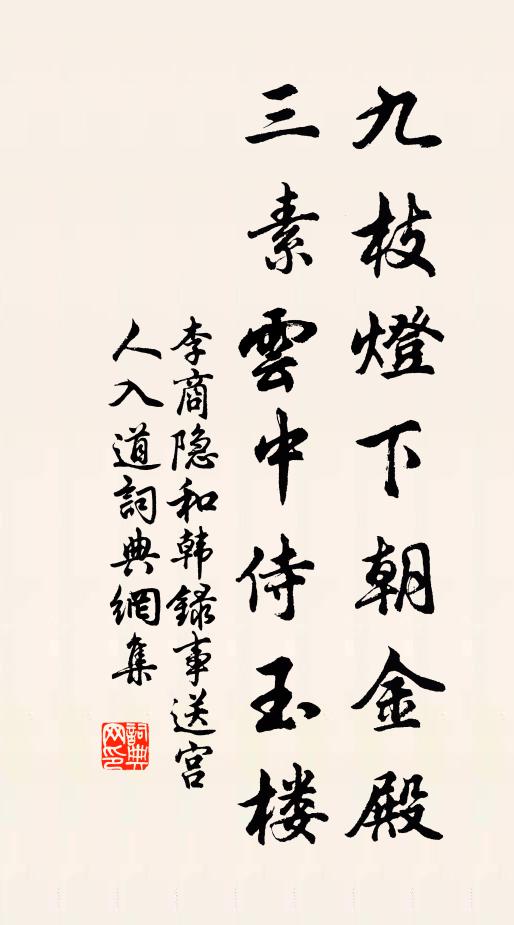 九枝燈下朝金殿
三素雲中侍玉楼
李商隐和韩録事送宫
人入道詞典網集
詞典网印